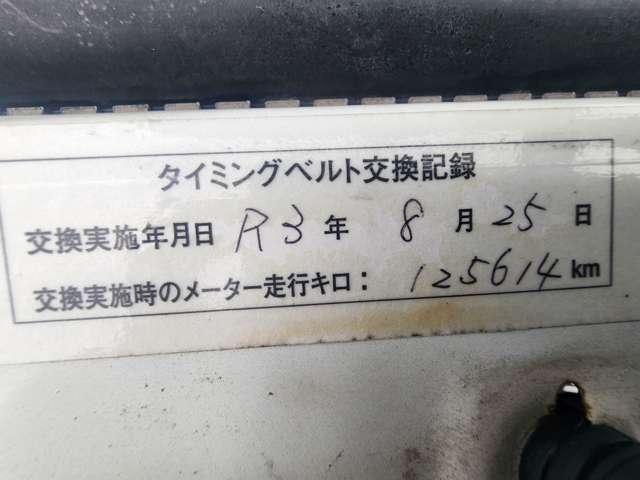 タイミングベルト交換記録
交換実施年月日 R3年 8月25日
交換実施時のメーター走行キロ： 125614km